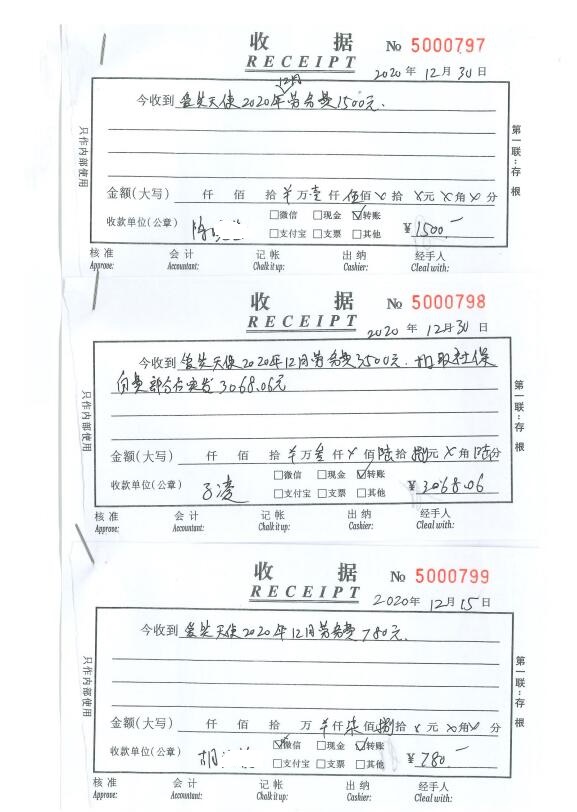 收 据 No 5000797
RECEIPT
2020年12月30日
12月
今收到 爱笑天使2020年劳务费1500元.
只作内部使用
第一联:存根
金额(大写) 仟 佰 拾 ¥万壹仟伍佰x拾x元x角x分
收款单位(公章) 陈
□微信 □现金 ☑转账
□支付宝 □支票 □其他
¥1500.—
核准 会计 记帐 出纳 经手人
Approve: Accountant: Chalk it up: Cashier: Cleal with:
收 据 No 5000798
RECEIPT
2020年12月30日
今收到 爱笑天使2020年12月劳务费3500元. 扣取社保
自费部分后实发3068.06元
只作内部使用
第一联:存根
金额(大写) 仟 佰 拾 ¥万叁仟x佰陆拾捌元x角陆分
收款单位(公章)
□微信 □现金 ☑转账
□支付宝 □支票 □其他
¥3068.06
核准 会计 记帐 出纳 经手人
Approve: Accountant: Chalk it up: Cashier: Cleal with:
收 据 No 5000799
RECEIPT
2020年12月15日
今收到 爱笑天使2020年12月劳务费780元.
只作内部使用
第一联:存根
金额(大写) 仟 佰 拾 万¥仟柒佰捌拾x元x角x分
收款单位(公章) 胡
☑微信 □现金 ☑转账
□支付宝 □支票 □其他
¥780.—
核准 会计 记帐 出纳 经手人
Approve: Accountant: Chalk it up: Cashier: Cleal with: